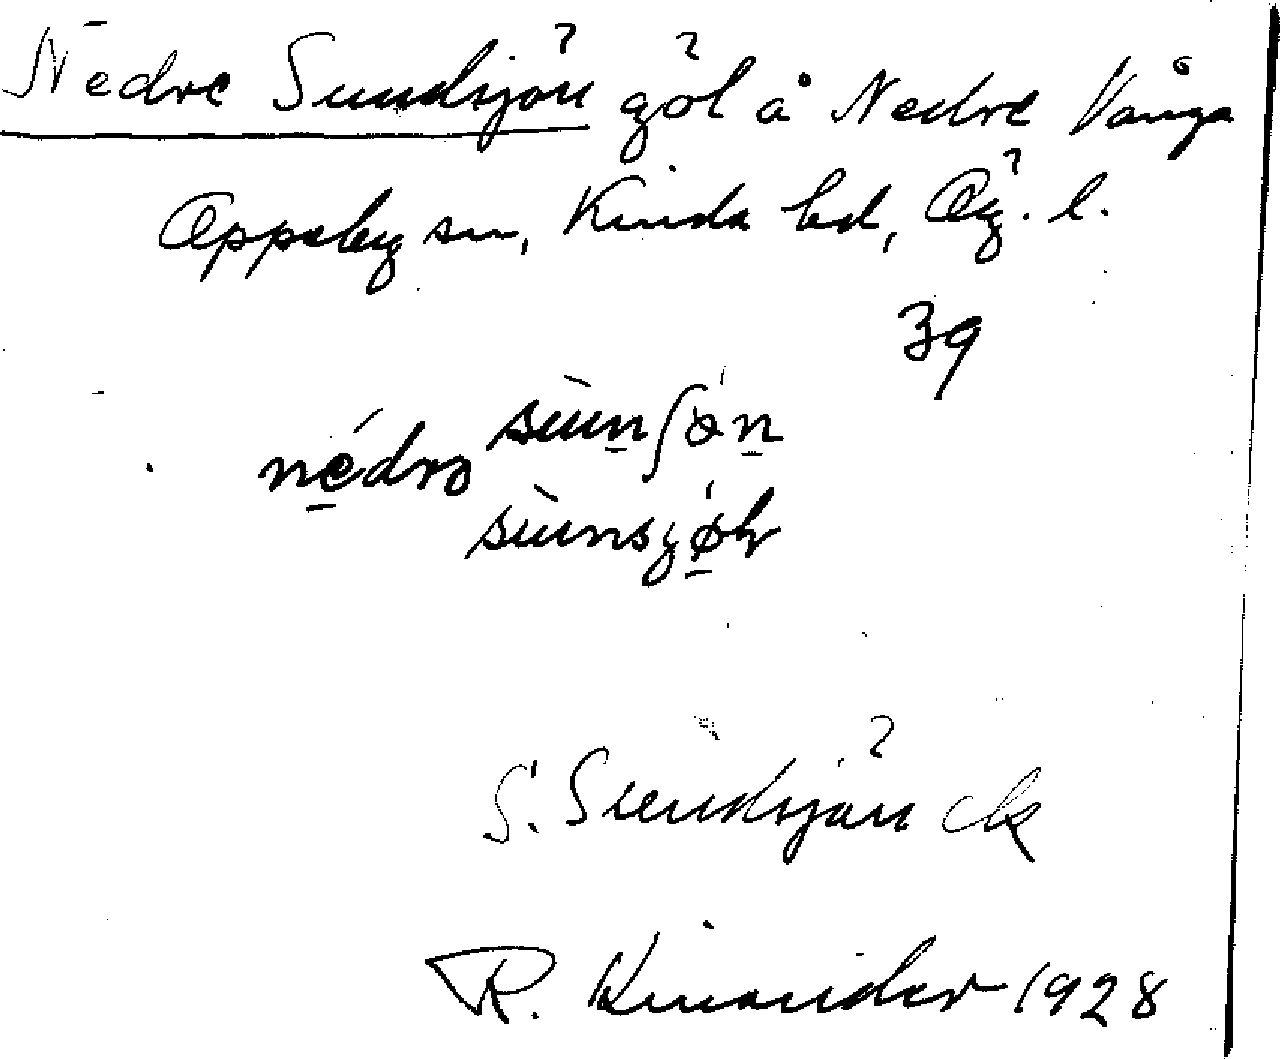 Nedre Sundsjön göl å Nedre Vånga
Oppeby sn, Kinda hd, Ög. l.
39
nédrə sùunʃǿn
sùunsjǿn
S. Sundsjön ek
R. Kinander 1928